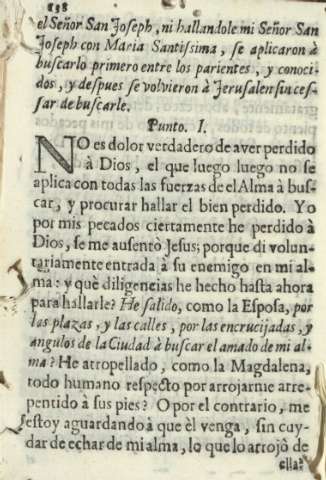 838
el Señor San Joseph, ni hallandole mi Señor San
Joseph con Maria Santissima, se aplicaron à
buscarlo primero entre los parientes, y conoci-
dos, y despues se volvieron à Jerusalen sin ces-
sar de buscarle.
Punto. I.
NO es dolor verdadero de aver perdido
à Dios, el que luego luego no se
aplica con todas las fuerzas de el Alma à bus-
car, y procurar hallar el bien perdido. Yo
por mis pecados ciertamente he perdido à
Dios, se me ausentò Jesus; porque di volun-
tariamente entrada à su enemigo en mi al-
ma: y què diligencias he hecho hasta ahora
para hallarle? He salido, como la Esposa, por
las plazas, y las calles, por las encrucijadas, y
angulos de la Ciudad à buscar el amado de mi al-
ma? He atropellado, como la Magdalena,
todo humano respecto por arrojarme arre-
pentido à sus pies? O por el contrario, me
estoy aguardando à que èl venga, sin cuy-
dar de echar de mi alma, lo que lo arrojò de
ella?